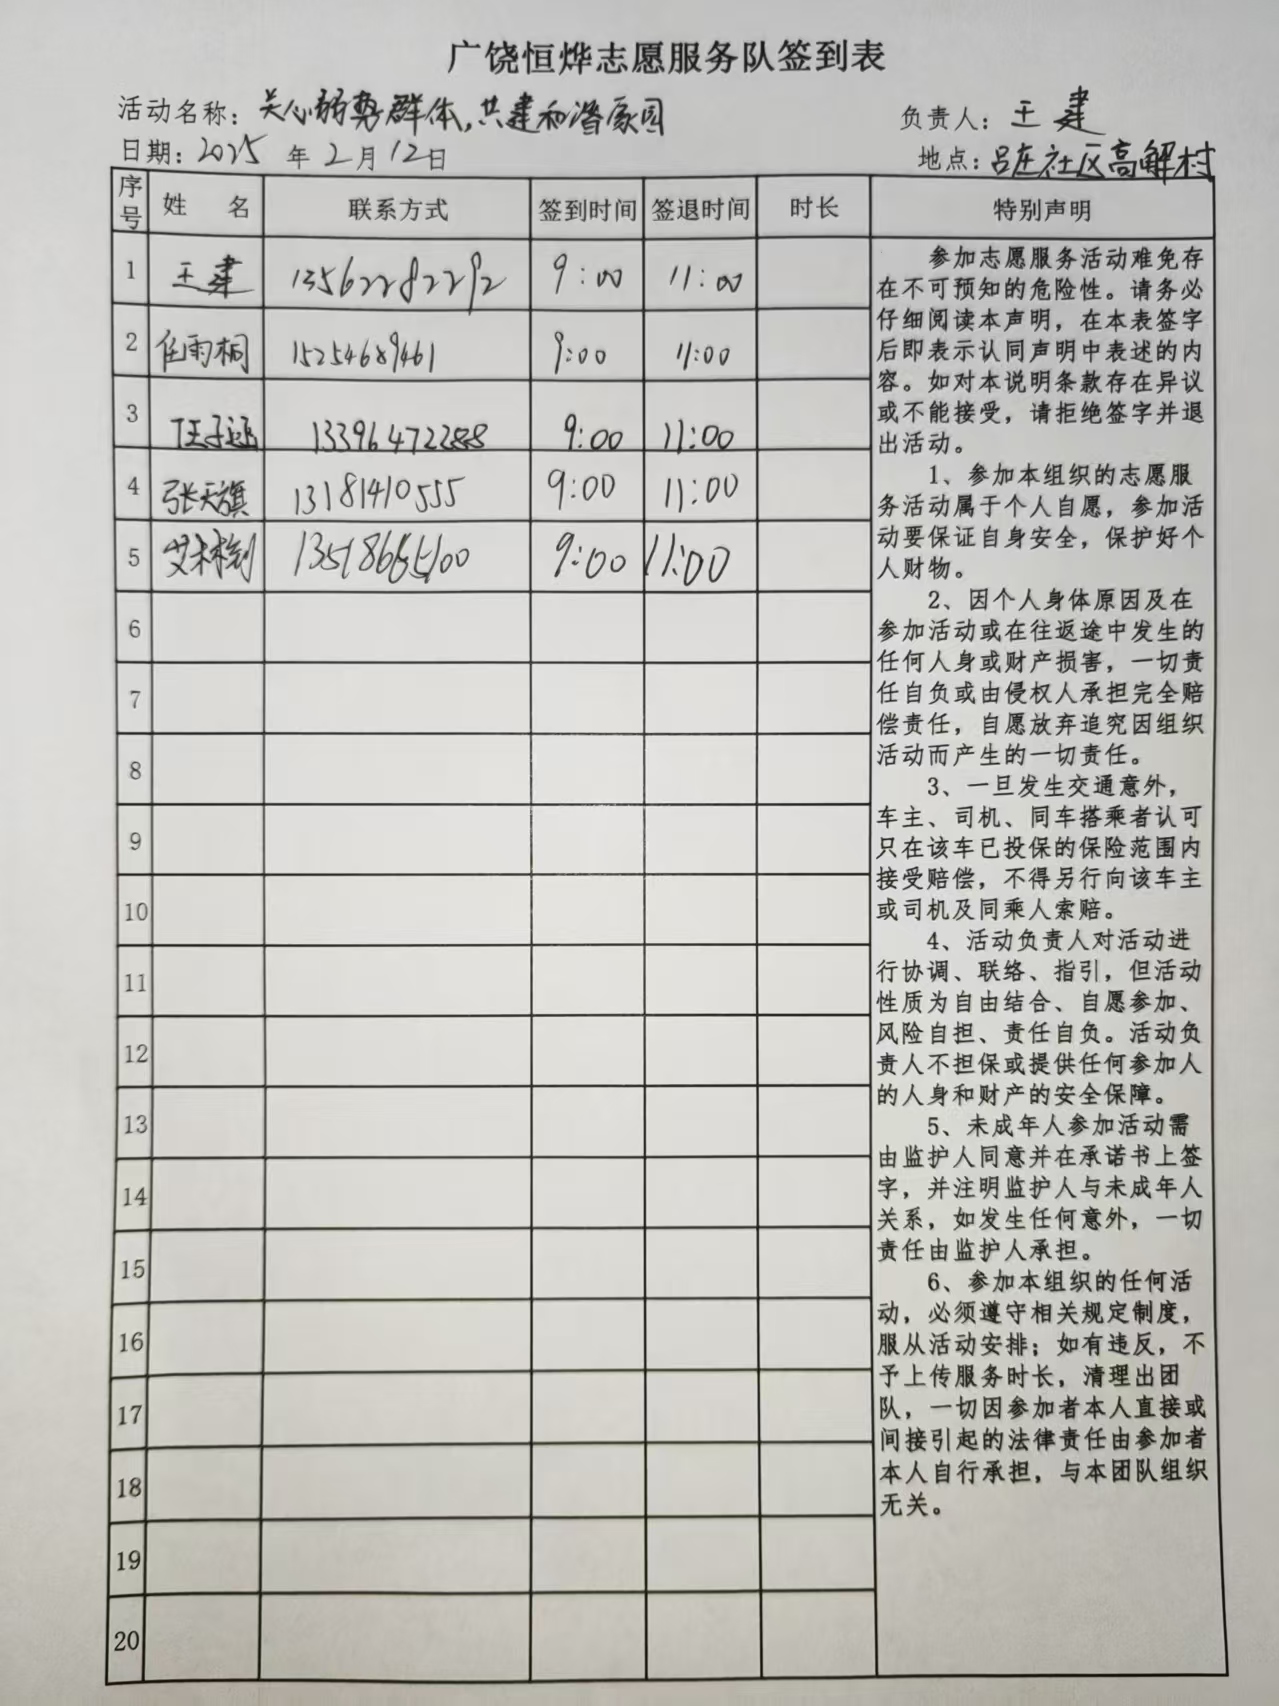 广饶恒烨志愿服务队签到表
活动名称：关心弱势群体，共建和谐家园 负责人：王建
日期：2025年2月12日 地点：吕庄社区高解村
序号 姓名 联系方式 签到时间 签退时间 时长 特别声明
1 王建 13562282292 9:00 11:00
2 任雨桐 15254689461 9:00 11:00
3 13396472288 9:00 11:00
4 张天旗 13181410555 9:00 11:00
5 9:00 11:00
6
7
8
9
10
11
12
13
14
15
16
17
18
19
20
参加志愿服务活动难免存
在不可预知的危险性。请务必
仔细阅读本声明，在本表签字
后即表示认同声明中表述的内
容。如对本说明条款存在异议
或不能接受，请拒绝签字并退
出活动。
1、参加本组织的志愿服
务活动属于个人自愿，参加活
动要保证自身安全，保护好个
人财物。
2、因个人身体原因及在
参加活动或在往返途中发生的
任何人身或财产损害，一切责
任自负或由侵权人承担完全赔
偿责任，自愿放弃追究因组织
活动而产生的一切责任。
3、一旦发生交通意外，
车主、司机、同车搭乘者认可
只在该车已投保的保险范围内
接受赔偿，不得另行向该车主
或司机及同乘人索赔。
4、活动负责人对活动进
行协调、联络、指引，但活动
性质为自由结合、自愿参加、
风险自担、责任自负。活动负
责人不担保或提供任何参加人
的人身和财产的安全保障。
5、未成年人参加活动需
由监护人同意并在承诺书上签
字，并注明监护人与未成年人
关系，如发生任何意外，一切
责任由监护人承担。
6、参加本组织的任何活
动，必须遵守相关规定制度，
服从活动安排；如有违反，不
予上传服务时长，清理出团
队，一切因参加者本人直接或
间接引起的法律责任由参加者
本人自行承担，与本团队组织
无关。